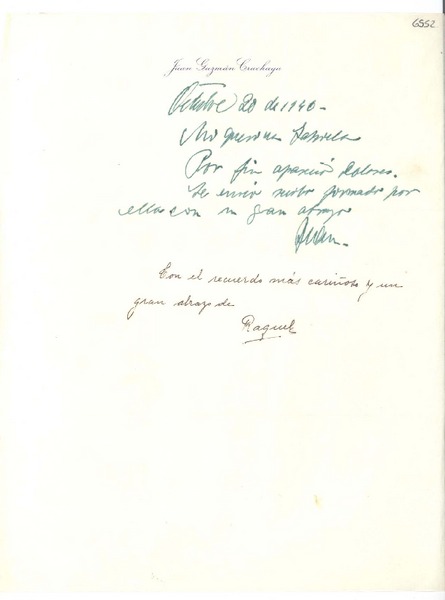 6552
Juan Guzmán Cruchaga
Octubre 20 de 1940-
Mi querida Gabriela
Por fin apareció Dolores.
Le envío recibo firmado por
ella con un gran abrazo
Juan.
Con el recuerdo más cariñoso y un
gran abrazo de
Raquel